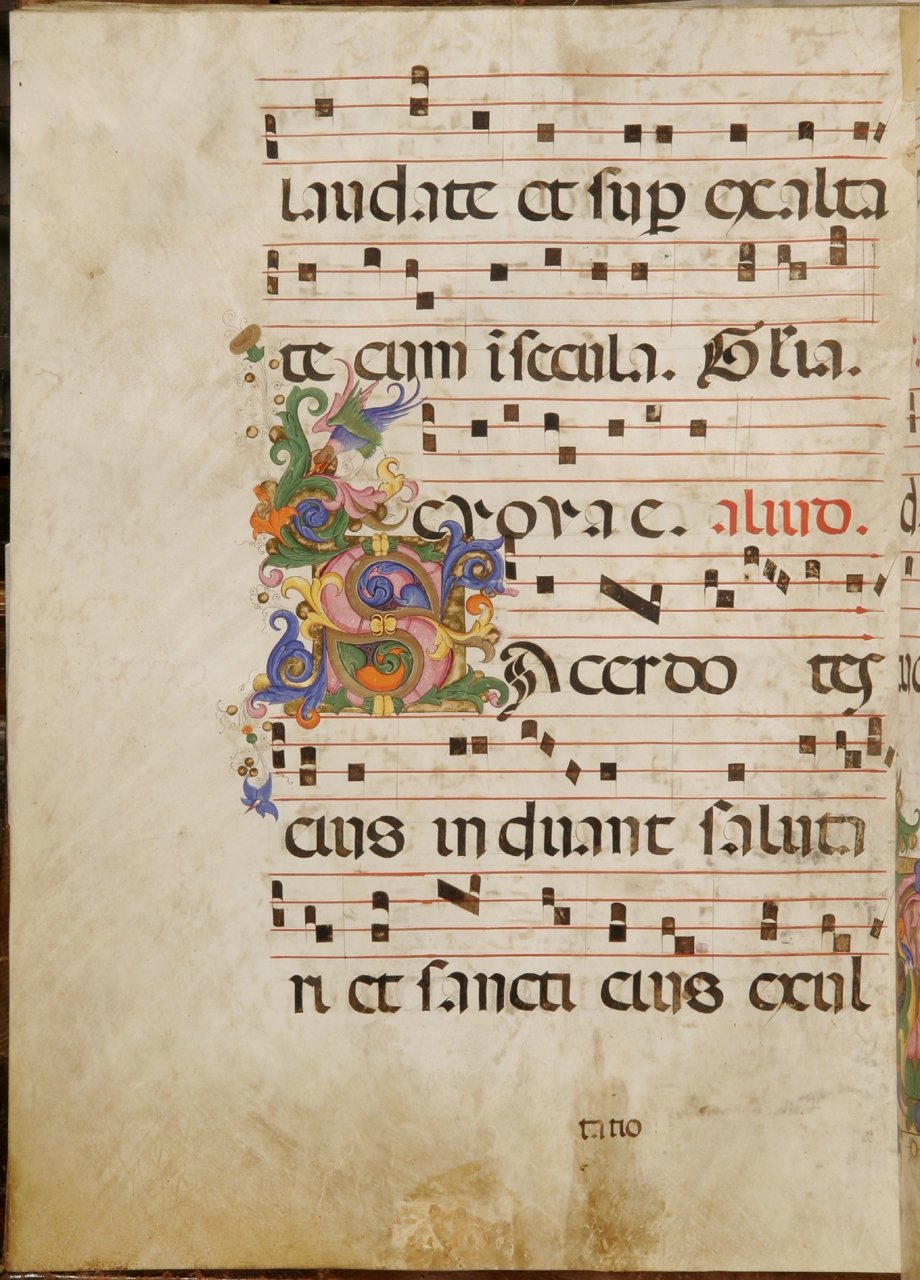 laudate et sup exalta
te cum i secula. Gl'ia.
Et rorae. aliud.
SAcerdo tes
eius induant saluta
ri et sancti eius exul
tatio